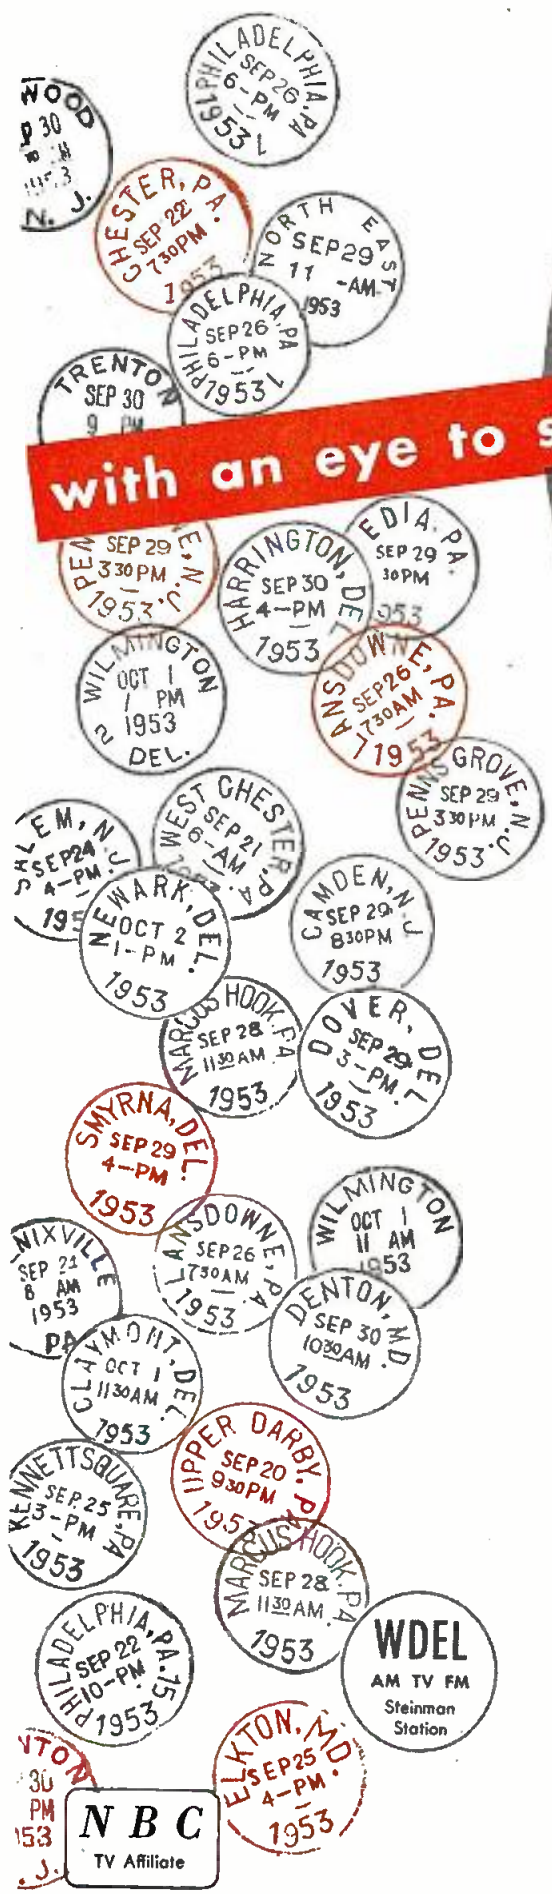 PHILADELPHIA, PA
SEP 26
6-PM
1953
WOOD
30
N. J.
CHESTER, PA.
SEP 22
730PM
1953
NORTH EAST
SEP 29
11 -AM
1953
PHILADELPHIA, PA
SEP 26
6-PM
1953
TRENTON
SEP 30
9 PM
with an eye to s
PEN E, N.J.
SEP 29
330PM
1953
HARRINGTON, DEL
SEP 30
4-PM
1953
EDIA, PA.
SEP 29
30PM
953
WILMINGTON
2
OCT 1
1 PM
1953
DEL.
LANSDOWNE, PA.
SEP 26
730AM
1953
PENNS GROVE, N.J.
SEP 29
330PM
1953
WEST CHESTER, PA
SEP 21
6-AM
LEM, N.J
SEP 24
4-PM
195
NEWARK, DEL.
OCT 2
1-PM
1953
CAMDEN, N.J
SEP 29
830PM
1953
MARCUS HOOK, PA
SEP 28
1130AM
1953
DOVER, DEL
SEP 29
3-PM
1953
SMYRNA, DEL.
SEP 29
4-PM
1953
WILMINGTON
OCT 1
11 AM
1953
LANSDOWNE, PA
SEP 26
730AM
1953
NIXVILLE
SEP 21
8 AM
1953
PA
DENTON, MD.
SEP 30
1030AM
1953
CLAYMONT, DEL.
OCT 1
1130AM
1953
UPPER DARBY, PA
SEP 20
930PM
195
KENNETTSQUARE, PA
SEP 25
3-PM
1953
MARCUS HOOK, PA
SEP 28
1130AM
1953
PHILADELPHIA, PA. 15
SEP 22
10-PM
1953
WDEL
AM TV FM
Steinman
Station
ELKTON, MD.
SEP 25
4-PM
1953
TON
30
PM
153
. J.
N B C
TV Affiliate